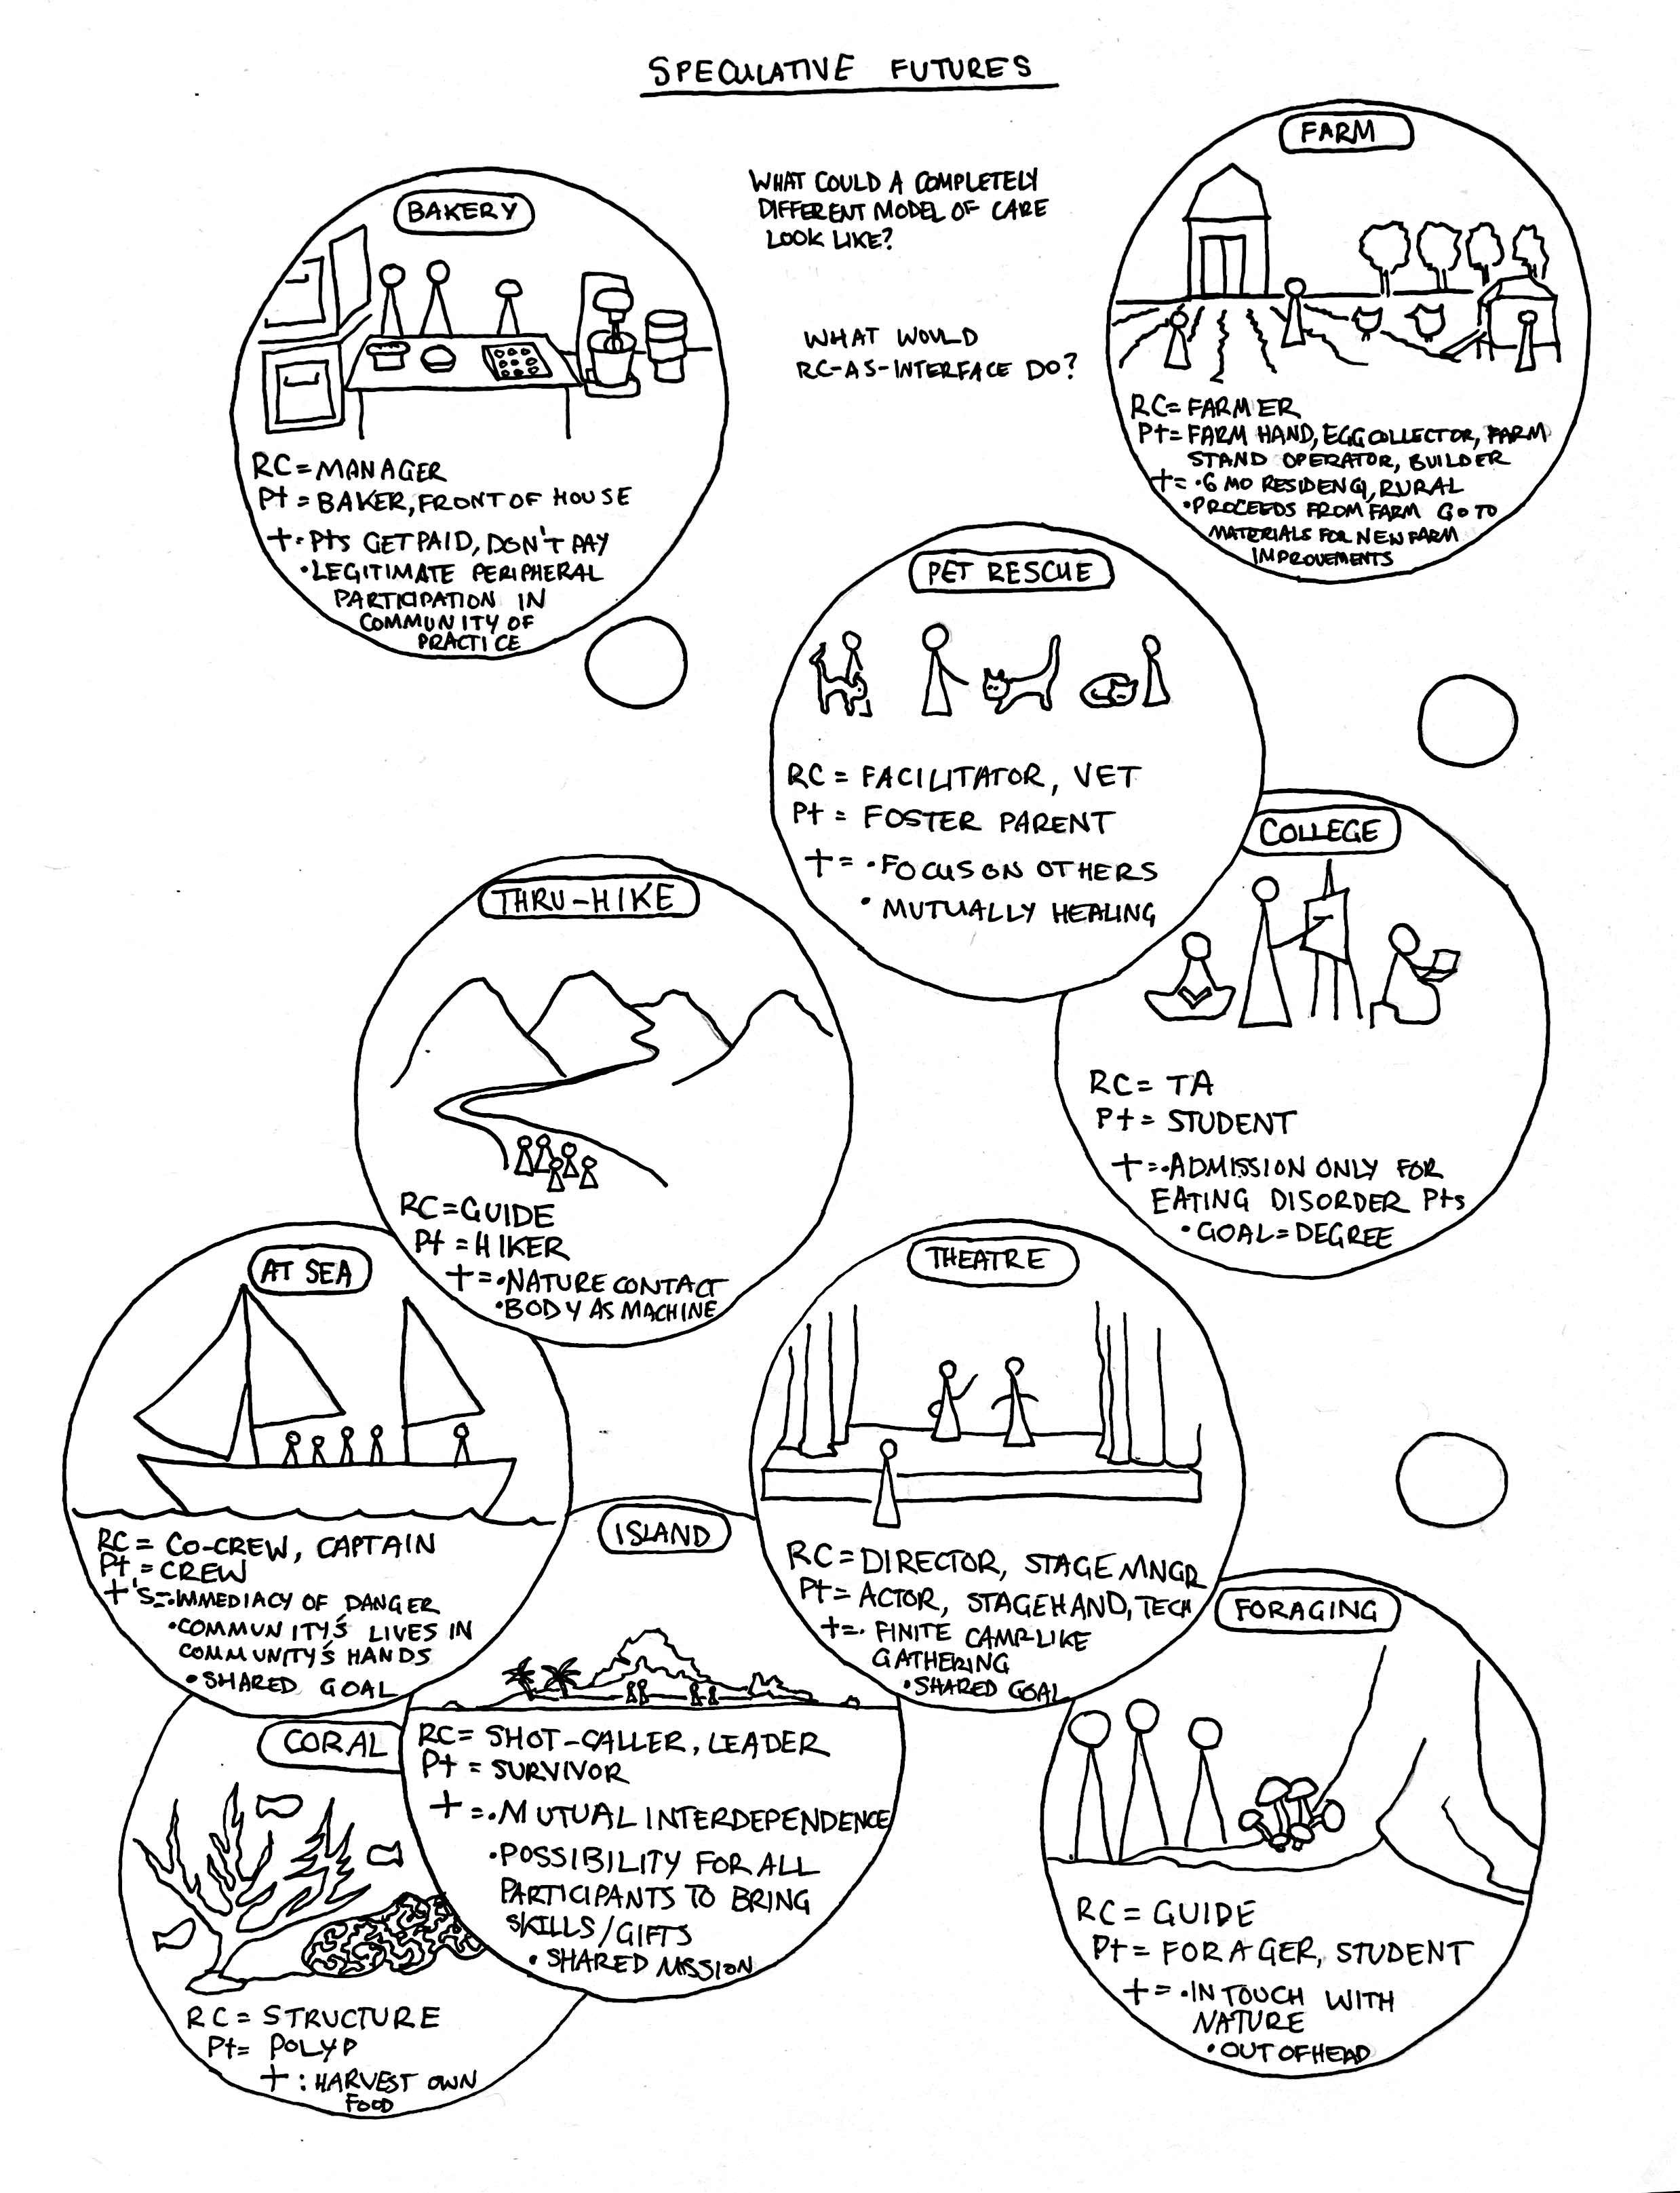 SPECULATIVE FUTURES
WHAT COULD A COMPLETELY
DIFFERENT MODEL OF CARE
LOOK LIKE?
WHAT WOULD
RC-AS-INTERFACE DO?
BAKERY
RC = MANAGER
Pt = BAKER, FRONT OF HOUSE
+ • Pts GET PAID, DON'T PAY
• LEGITIMATE PERIPHERAL
PARTICIPATION IN
COMMUNITY OF
PRACTICE
FARM
RC = FARMER
Pt = FARM HAND, EGG COLLECTOR, FARM
STAND OPERATOR, BUILDER
+ = • 6 MO RESIDENCY, RURAL
• PROCEEDS FROM FARM GO TO
MATERIALS FOR NEW FARM
IMPROVEMENTS
PET RESCUE
RC = FACILITATOR, VET
Pt = FOSTER PARENT
+ = • FOCUS ON OTHERS
• MUTUALLY HEALING
COLLEGE
RC = TA
Pt = STUDENT
+ = • ADMISSION ONLY FOR
EATING DISORDER Pts
• GOAL = DEGREE
THRU-HIKE
RC = GUIDE
Pt = HIKER
+ = • NATURE CONTACT
• BODY AS MACHINE
AT SEA
RC = CO-CREW, CAPTAIN
Pt = CREW
+'S = • IMMEDIACY OF DANGER
• COMMUNITY'S LIVES IN
COMMUNITY'S HANDS
• SHARED GOAL
THEATRE
RC = DIRECTOR, STAGE MNGR
Pt = ACTOR, STAGEHAND, TECH
+ = • FINITE CAMP-LIKE
GATHERING
• SHARED GOAL
ISLAND
RC = SHOT-CALLER, LEADER
Pt = SURVIVOR
+ = • MUTUAL INTERDEPENDENCE
• POSSIBILITY FOR ALL
PARTICIPANTS TO BRING
SKILLS/GIFTS
• SHARED MISSION
CORAL
RC = STRUCTURE
Pt = POLYP
+ : HARVEST OWN
FOOD
FORAGING
RC = GUIDE
Pt = FORAGER, STUDENT
+ = • IN TOUCH WITH
NATURE
• OUT OF HEAD